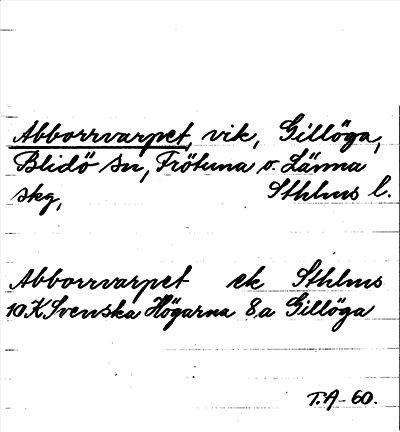 Abborrvarpet, vik, Gillöga,
Blidö sn, Frötuna o. Länna
skg, Sthlms l.
Abborrvarpet ek Sthlms
10 K Svenska Högarna 8a Gillöga
T.A-60.